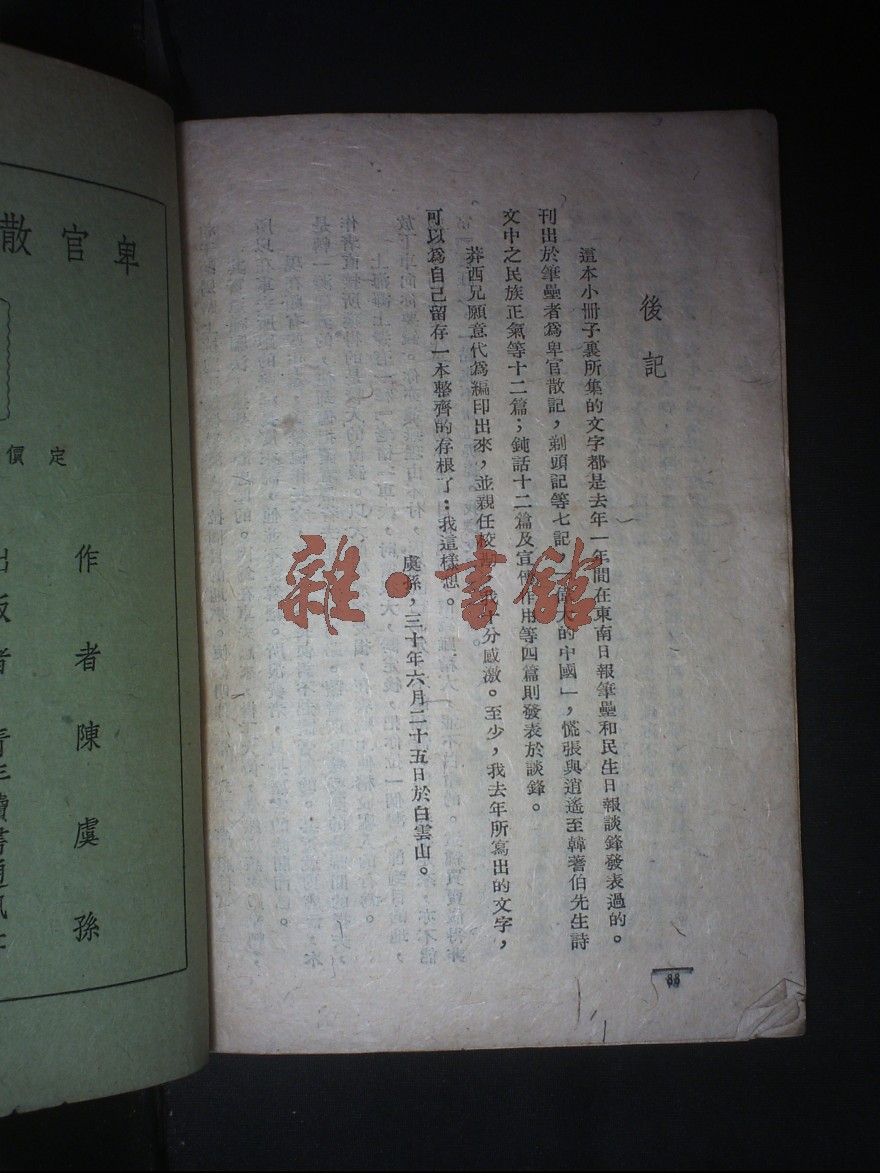 後記
這本小冊子裏所集的文字都是去年一年間在東南日報筆壘和民生日報談鋒發表過的。
刊出於筆壘者爲卑官散記，剃頭記等七記，「偉大的中國」，慌張與逍遙至韓蓍伯先生詩
文中之民族正氣等十二篇；鈍話十二篇及宣傳作用等四篇則發表於談鋒。
莽西兄願意代爲編印出來，並親任校，我十分感激。至少，我去年所寫出的文字，
可以爲自己留存一本整齊的存根了：我這樣想。
虞孫，三十年六月二十五日於白雲山。
88
雜·書館
卑官散
定價
作者陳虞孫
出版者青年讀書通訊社